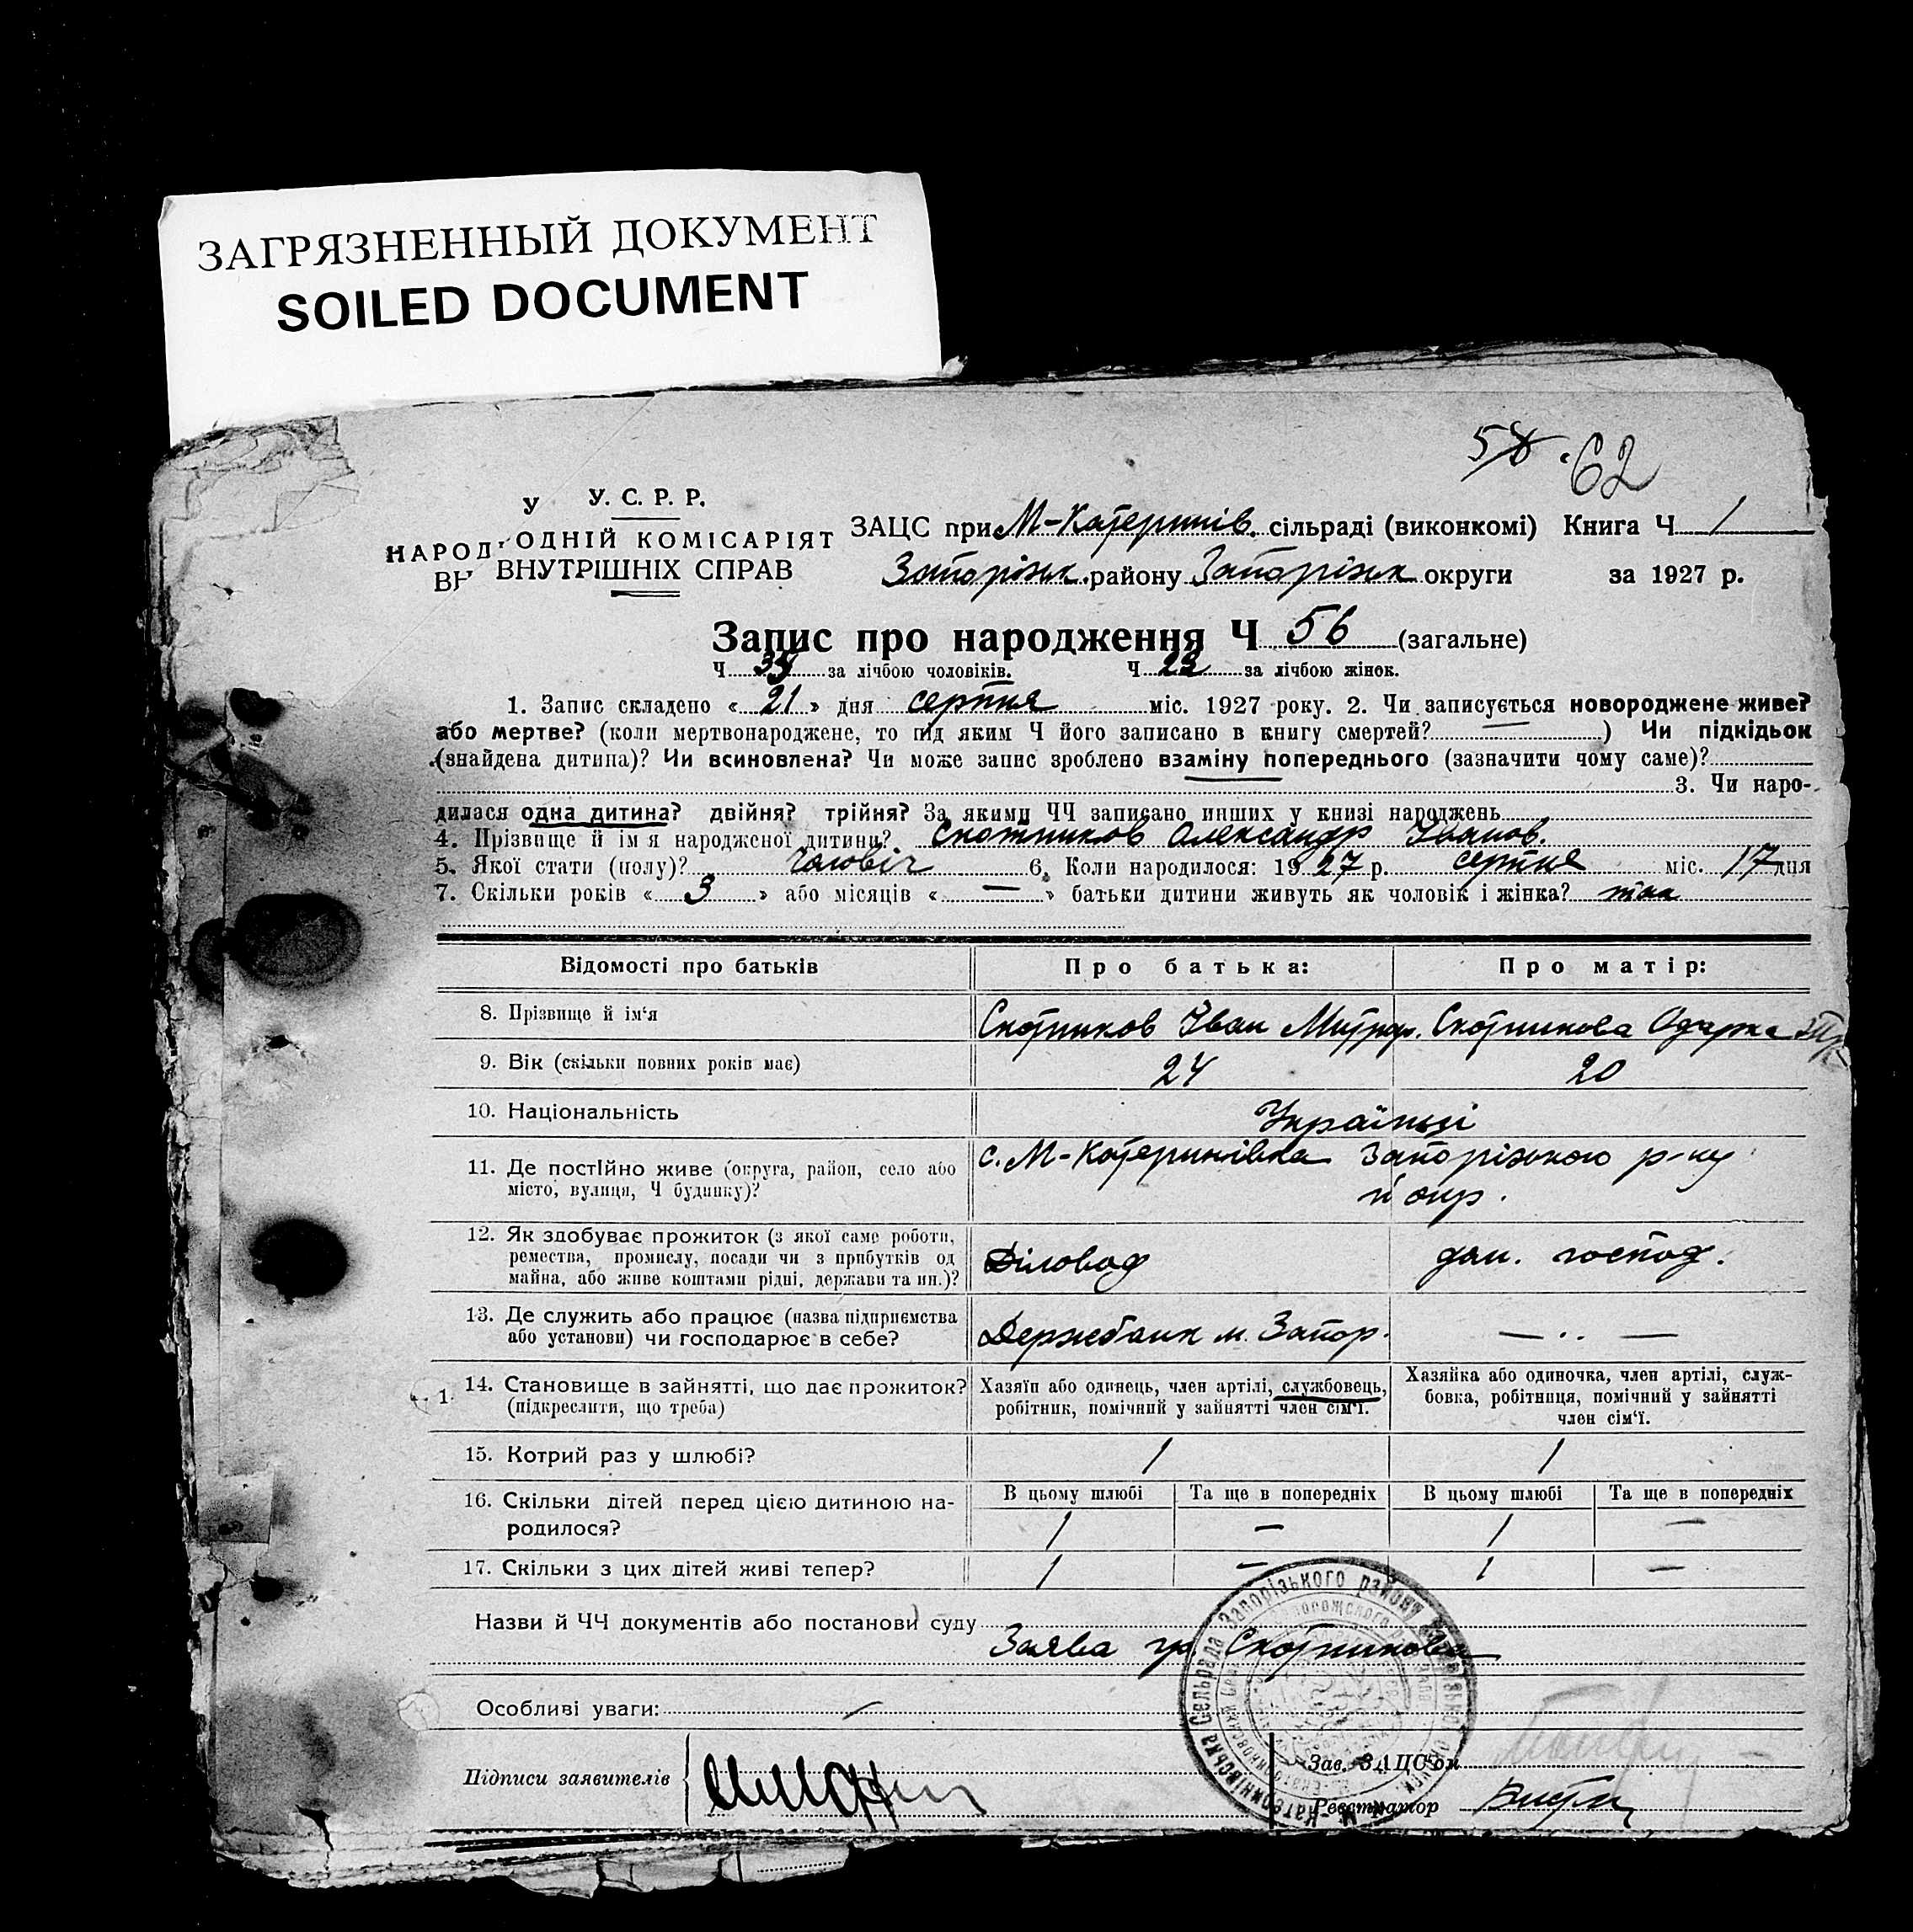 ЗАГРЯЗНЕННЫЙ ДОКУМЕНТ
SOILED DOCUMENT
58 62
У У. С. Р. Р.
НАРОД ОДНІЙ КОМІСАРІЯТ
ВН ВНУТРІШНІХ СПРАВ
ЗАЦС при М-Катеринів. сільраді (виконкомі) Книга Ч 1
Запоріжк. району Запоріжк округи за 1927 р.
Запис про народження Ч 56 (загальне)
Ч за лічбою чоловіків. Ч 22 за лічбою жінок.
1. Запис складено « 21 » дня серпня міс. 1927 року. 2. Чи записується новороджене живе?
або мертве? (коли мертвонароджене, то під яким Ч його записано в книгу смертей? — ) Чи підкідьок
(знайдена дитина)? Чи всиновлена? Чи може запис зроблено взаміну попереднього (зазначити чому саме)?
3. Чи наро-
дилася одна дитина? двійня? трійня? За якими ЧЧ записано инших у книзі народжень
4. Прізвище й ім я народженої дитини? Скотников Олександр Іванов.
5. Якої стати (полу)? чоловіч 6. Коли народилося: 1927 р. серпня міс. 17 дня
7. Скільки років « 3 » або місяців « — » батьки дитини живуть як чоловік і жінка? так
Відомості про батьків Про батька: Про матір:
8. Прізвище й ім'я Скотников Іван Митроф. Скотникова Одарка
9. Вік (скільки повних років має) 24 20
10. Національність Українці
11. Де постійно живе (округа, район, село або
місто, вулиця, Ч будинку)?
с. М-Катеринівка Запоріжкого р-ну
й окр.
12. Як здобуває прожиток (з якої саме роботи,
ремества, промислу, посади чи з прибутків од
майна, або живе коштами рідні, держави та ин.)?
Діловод дом. господ.
13. Де служить або працює (назва підприємства
або установи) чи господарює в себе?
Держбанк м. Запор. — .. —
14. Становище в зайнятті, що дає прожиток?
(підкреслити, що треба)
Хазяїн або одинець, член артілі, службовець,
робітник, помічний у зайнятті член сім'ї.
Хазяйка або одиночка, член артілі, служ-
бовка, робітниця, помічний у зайнятті
член сім'ї.
15. Котрий раз у шлюбі? 1 1
16. Скільки дітей перед цією дитиною на-
родилося?
В цьому шлюбі Та ще в попередніх В цьому шлюбі Та ще в попередніх
1 — 1 —
17. Скільки з цих дітей живі тепер? 1 — 1 —
Назви й ЧЧ документів або постанови суду
Заява гр. Скотникова
Особливі уваги:
Підписи заявителів
Зав. ЗАЦС'ом
Реєстратор